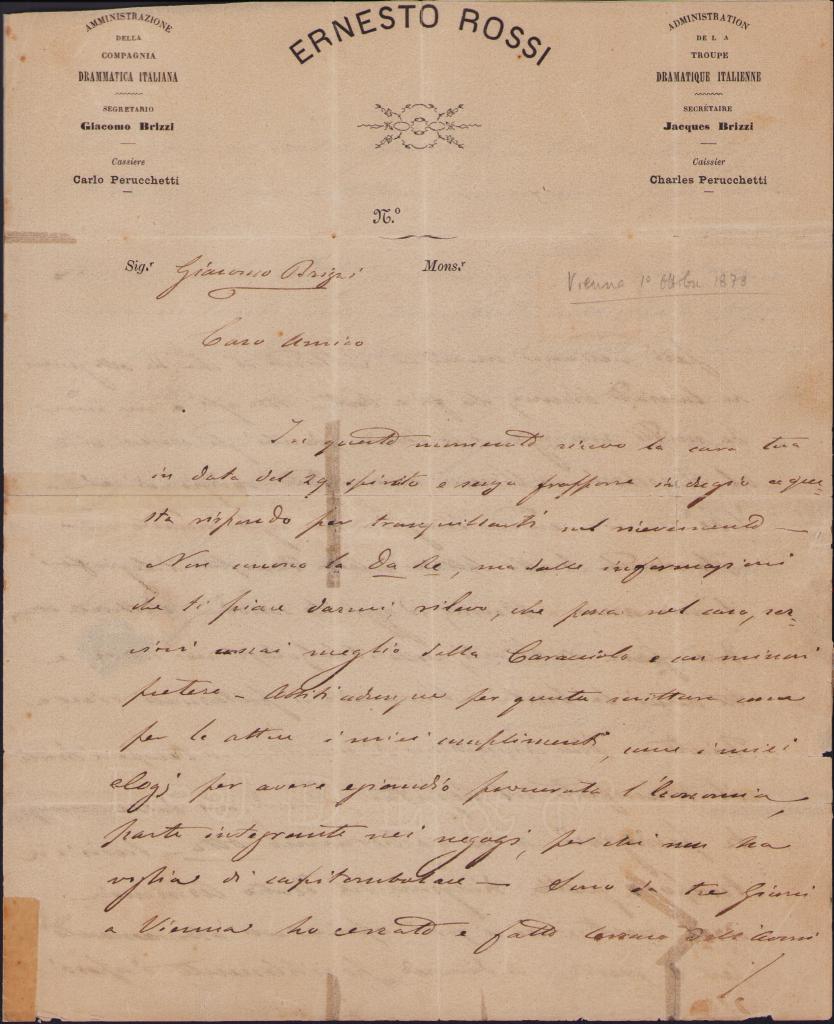 AMMINISTRAZIONE
DELLA
COMPAGNIA
DRAMMATICA ITALIANA
SEGRETARIO
Giacomo Brizzi
Cassiere
Carlo Perucchetti
ERNESTO ROSSI
ADMINISTRATION
DE L A
TROUPE
DRAMATIQUE ITALIENNE
SECRÉTAIRE
Jacques Brizzi
Caissier
Charles Perucchetti
N.o
Sig.r Giacomo Brizzi Mons.r
Vienna 1o Ottobre 1878
Caro Amico
In questo momento ricevo la cara tua
in data del 29 spirato e senza frapporre indugio a que=
sta rispondo per tranquillarti nel ricevimento —
Non conosco la Da Re, ma dalle informazioni
che ti piace darmi, rilevo, che possa nel caso, ser=
virci assai meglio della Caracciolo e con minori
pretese — Abbiti adunque per questa scrittura come
per le altre i miei complimenti, come i miei
elogj per avere eziandio procurata l'Economia,
parte integrante nei negozj, per chi non ha
voglia di capitombolare — Sono da tre giorni
a Vienna ho cercato e fatto